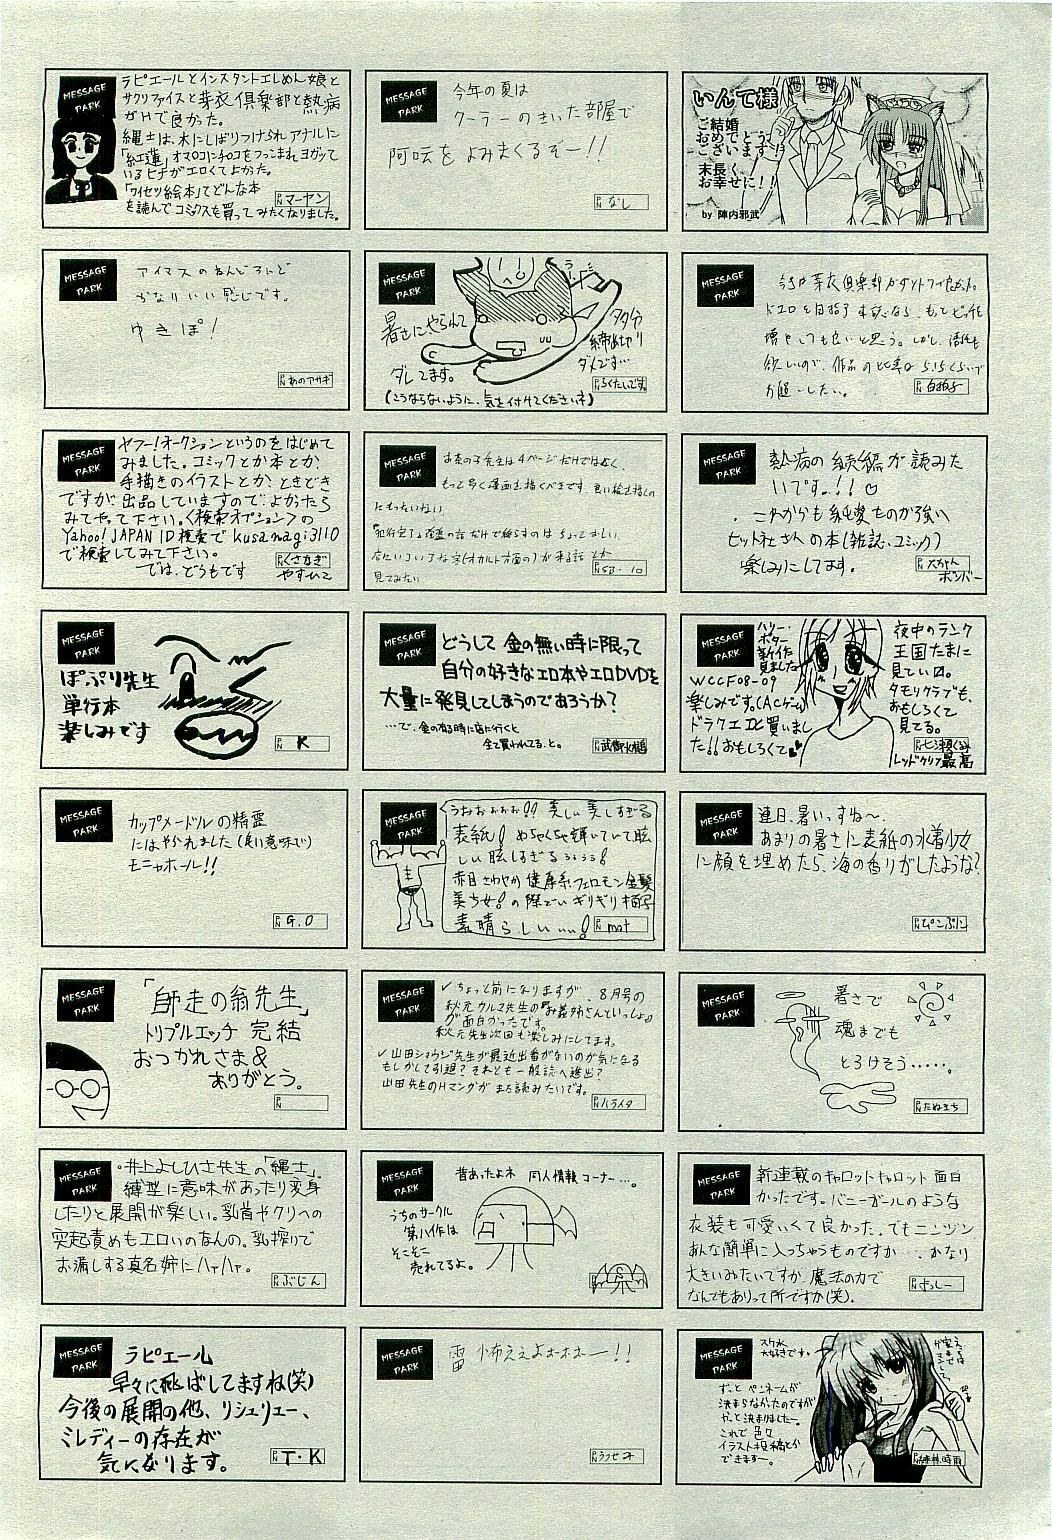 MESSAGE PARK
ラピエールとインスタントエレめん娘と
サクリファイスと芽衣倶楽部と熱病
がHで良かった。
縄士は、木にしばりつけられアナルに
「紅蓮」オマ〇コにチ〇コをツッこまれヨガッて
いるヒナがエロくてよかった。
「ワイセツ絵本」てどんな本
を読んでコミックスを買ってみたくなりました。
PN マーヤン
MESSAGE PARK
今年の夏は
クーラーのきいた部屋で
阿吽をよみまくるぞー!!
PN なし
いんて様
ご結婚
おめでとう
ございます!
末長く
お幸せに!!
by 陣内邪武
MESSAGE PARK
アイマスのねんどろいど
かなりいい感じです。
ゆきぽ!
PN あのアサギ
MESSAGE PARK
暑さにやられて
ダレてます。
締め切り
ダメです…
PN らくたいです。
(こうならないように、気を付けてくださいネ)
MESSAGE PARK
欲しいので、作品の比率は5:15くらいで
お願いしたい。
PN 白拍子
MESSAGE PARK
ヤフー!オークションというのをはじめて
みました。コミックとか本とか、
手描きのイラストとか、ときどき
ですが、出品していますので、よかったら
みてやって下さい。〈検索オプション〉の
Yahoo!JAPAN ID検索で kusanagi3110
で検索してみて下さい。
では、どうもです
PN くさなぎやすひこ
MESSAGE PARK
お茶の子先生は4ページだけではなく、
もっと多く漫画を描くべきです。良い絵を描くの
にもったいない。
見てみたい
PN SB-10
MESSAGE PARK
熱病の続編が読みた
いです。!!♡
これからも純愛ものが強い
ヒット社さんの本(雑誌、コミック)
楽しみにしてます。
PN 大ちゃんボンバー
MESSAGE PARK
ぽぷり先生
単行本
楽しみです
PN K
MESSAGE PARK
どうして金の無い時に限って
自分の好きなエロ本やエロDVDを
大量に発見してしまうのであろうか?
…で、金の有る時に店に行くと
全て買われてる、と。
MESSAGE PARK
ハリー・
ポター
新作
見ました
WCCF08-09
楽しみです。(ACゲーム)
ドラクエIXと買いまし
た!!おもしろくて
夜中のランク
王国たまに
見てい〼。
タモリクラブも、
おもしろくて
見てる。
PN 七瀬くるみ
レッドクリフ最高
MESSAGE PARK
カップメードルの精霊
にはやられました(良い意味で)
モニャホール!!
PN G.O
MESSAGE PARK
うおおおおお!!美しい美しすぎる
表紙!めちゃくちゃ輝いていて眩
しい眩しすぎるぅぅぅぅ!
赤目さわやか健康系フェロモン金髪
美少女!の際どいギリギリ描写
素晴らしいぃぃ!
PN mat
MESSAGE PARK
連日、暑いっすね〜、
あまりの暑さに表紙の水着少女
に顔を埋めたら、海の香りがしたような?
PN ぴんぷに
MESSAGE PARK
「師走の翁先生」
トリプルエッチ 完結
おつかれさま&
ありがとう。
PN
MESSAGE PARK
✓ちょっと前になりますが、8月号の
秋元カルマ先生の『お義姉さんといっしょ』
が面白かったです。
秋元先生次回も楽しみにしてます。
✓山田ショウジ先生が最近出番がないのが気になる
もしかして引退?それとも一般誌へ進出?
山田先生のHマンガがまた読みたいです。
PN ハライタ
MESSAGE PARK
暑さで
魂までも
とろけそう.....。
PN たぬまち
MESSAGE PARK
・井上よしひさ先生の「縄士」。
縛型に意味があったり変身
したりと展開が楽しい。乳首やクリへの
突起責めもエロいのなんの。乳搾りで
お漏しする真名姉にハァハァ。
PN ぶじん
MESSAGE PARK
昔あったよネ 同人情報コーナー…。
うちのサークル
第八作は
そこそこ
売れてるよ。
MESSAGE PARK
新連載のキャロットキャロット面白
かったです。バニーガールのような
衣装も可愛いくて良かった。でもニンジン
あんな簡単に入っちゃうものですか…かなり
大きいみたいですが、魔法の力で
なんでもありって所ですか(笑)。
PN ホっしー
MESSAGE PARK
ラピエール
早々に飛ばしてますね(笑)
今後の展開の他、リシュリュー、
ミレディーの存在が
気になります。
PN T・K
MESSAGE PARK
雷怖ええよォホホー!!
PN うつせみ
MESSAGE PARK
スク水
大好きです。
ずっとペンネームが
決まらなかったのですが
やっと決まりましたー。
これで色々
イラスト投稿とか
できますー。